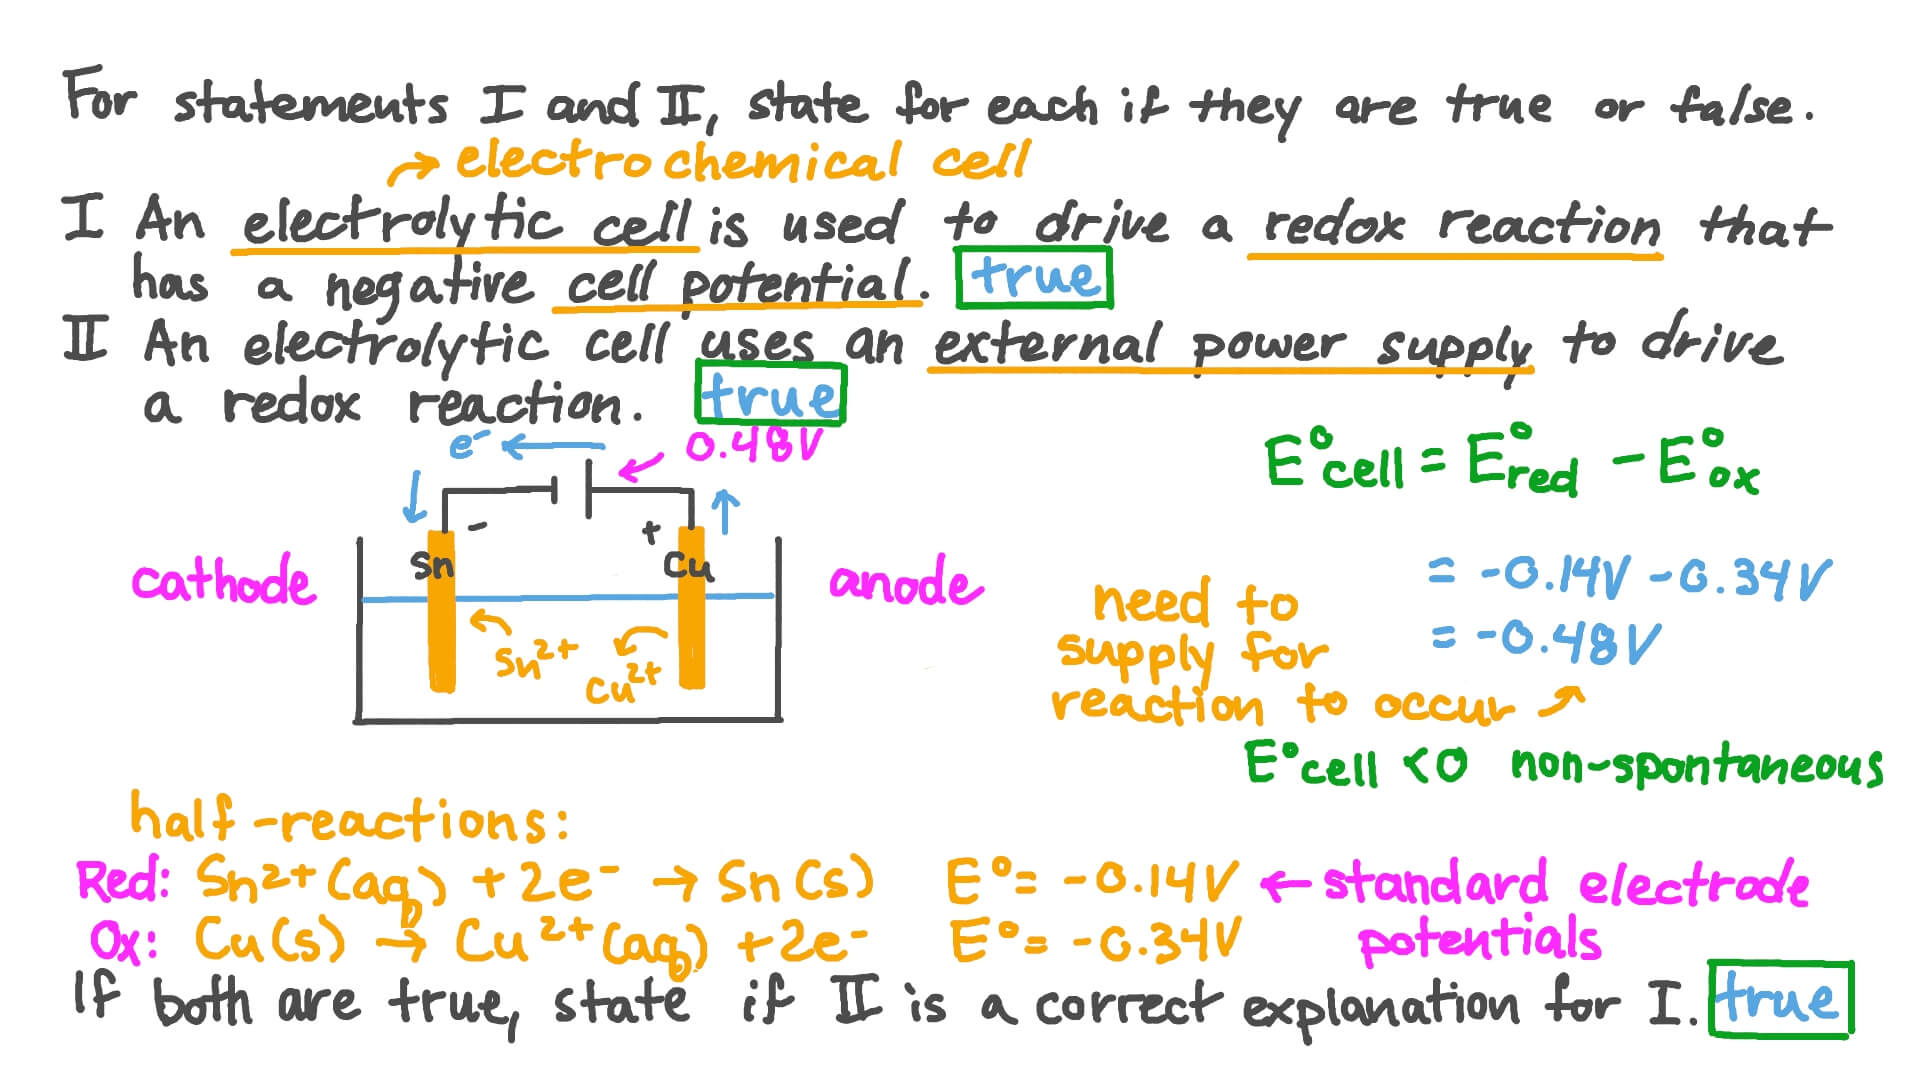 For statements I and II, state for each if they are true or false.
→ electrochemical cell
I An electrolytic cell is used to drive a redox reaction that
has a negative cell potential. true
II An electrolytic cell uses an external power supply to drive
a redox reaction. true
e⁻ ← 0.48V
E°cell = E°red - E°ox
- +
cathode Sn Cu anode
= -0.14V - 0.34V
need to
= -0.48V
supply for
Sn²⁺ Cu²⁺
reaction to occur
E°cell < 0 non-spontaneous
half-reactions:
Red: Sn²⁺(aq) + 2e⁻ → Sn(s) E° = -0.14V ← standard electrode
Ox: Cu(s) → Cu²⁺(aq) + 2e⁻ E° = -0.34V potentials
If both are true, state if II is a correct explanation for I. true